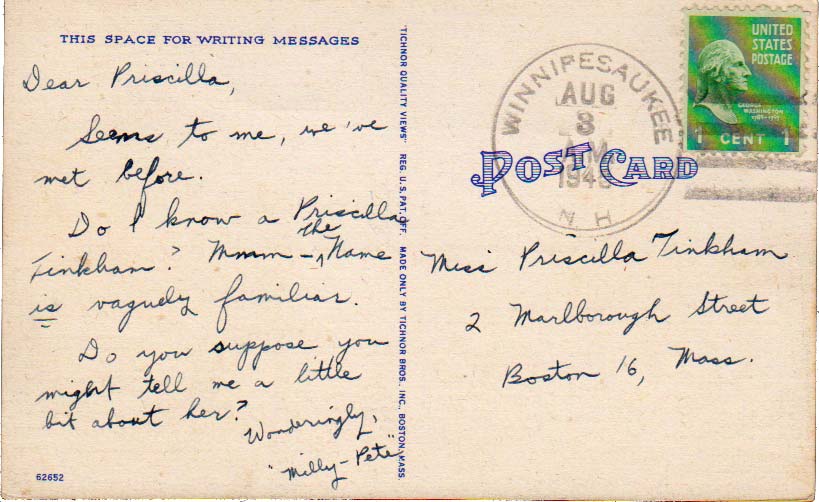 THIS SPACE FOR WRITING MESSAGES
Dear Priscilla,
Seems to me, we've
met before.
Do I know a Priscilla
Tinkham? Mmmm – the Name
is vaguely familiar.
Do you suppose you
might tell me a little
bit about her?
Wonderingly,
"Milly-Pete"
62652
"TICHNOR QUALITY VIEWS" REG. U.S. PAT. OFF. MADE ONLY BY TICHNOR BROS., INC., BOSTON, MASS.
WINNIPESAUKEE
AUG
8
A.M.
N.H.
UNITED
STATES
POSTAGE
GEORGE
WASHINGTON
1789-1797
1 CENT 1
POST CARD
Miss Priscilla Tinkham
2 Marlborough Street
Boston 16, Mass.